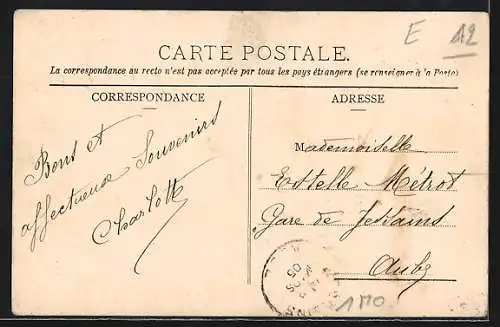 E 12
CARTE POSTALE.
La correspondance au recto n'est pas acceptée par tous les pays étrangers (se renseigner à la Poste)
CORRESPONDANCE
ADRESSE
Bons et
affectueux Souvenirs
Charlotte
Mademoiselle
Estelle Métrot
Gare de Jessains
Aube
05
1M0